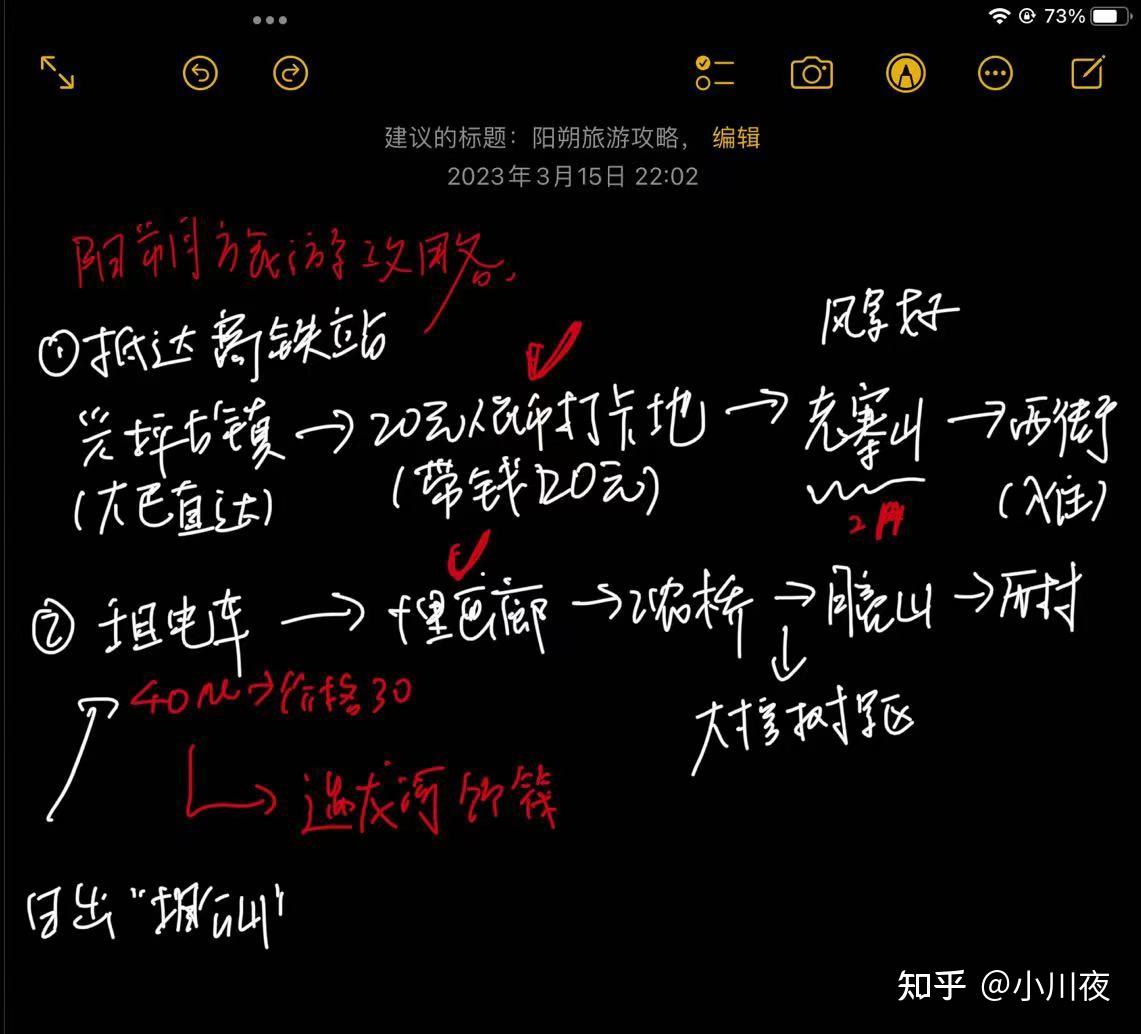 73%
建议的标题：阳朔旅游攻略， 编辑
2023年3月15日 22:02
阳朔旅游攻略，
①抵达高铁站
风景好
兴坪古镇→20元人民币打卡地→老寨山→西街
(大巴直达)
(带钱20元)
(入住)
② 租电车→十里画廊→工农桥→月亮山→历村
→价格30
大榕树景区
→遇龙河竹筏
日出“相公山”
知乎 @小川夜